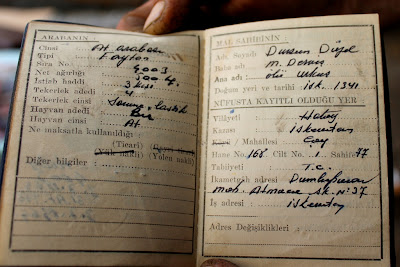 ARABANIN :
Cinsi : At arabası
Tipi : Fayton
Sıra No. : 4003
Net ağırlığı : 500 K.
İstiab haddi : 3 kişi
Tekerlek adedi : 4
Tekerlek cinsi : Lastik
Hayvan adedi : Bir
Hayvan cinsi : At
Ne maksatla kullanıldığı :
(Ticari)
(Yük nakli) (Yolcu nakli)
Diğer bilgiler :
MAL SAHİBİNİN :
Adı, Soyadı : Dursun
Baba adı : M. Derviş
Ana adı :
Doğum yeri ve tarihi : İsk. 1341
NÜFUSTA KAYITLI OLDUĞU YER
Vilâyeti : Hatay
Kazası : İskenderun
Köyü / Mahallesi : Çay
Hane No. 168 Cilt No. 1 Sahife 77
Tabiiyeti : T.C.
İkametgâh adresi : Dumlupınar
mah. SK. Nº 37
İş adresi : İskenderun
Adres Değişiklikleri :